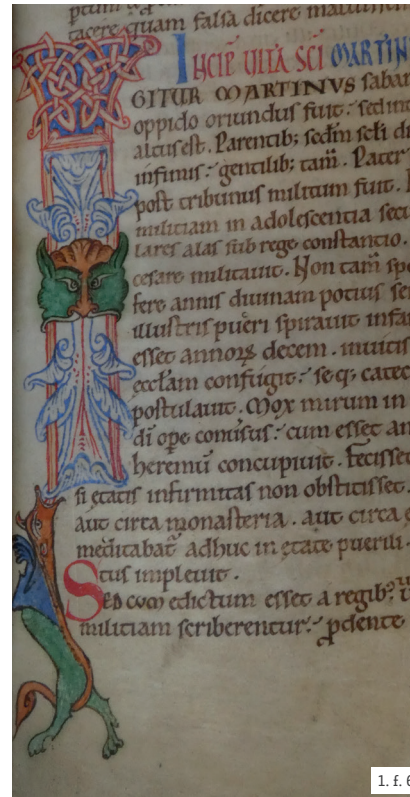 tacere, quam falsa dicere maluissem
INCIP̄ UITA SC̄I MARTIN
GITUR MARTINUS sabar
oppido oriundus fuit. sed in
altus est. Parentib; sedm̄ sclī di
infimis. gentilib; tam̄. Pater
post tribunus militum fuit.
militiam in adolescentia secu
lares alas sub rege constantio.
cesare militauit. Non tam̄ spo
fere annis diuinam potius se
illustris pueri spirauit infan
esset annorꝝ decem. inuitis
eccl̄am confugit. seq; catec
postulauit. Mox mirum in
dī ope conuersus. cum esset an
heremū concupiuit. fecisset
si ętatis infirmitas non obstitisset.
aut circa monasteria. aut circa ę
meditabat̄ adhuc in ętate puerili.
Stus impleuit.
SED cum edictum esset a regib;
militiam scriberentur. ꝓdente
1. f. 6